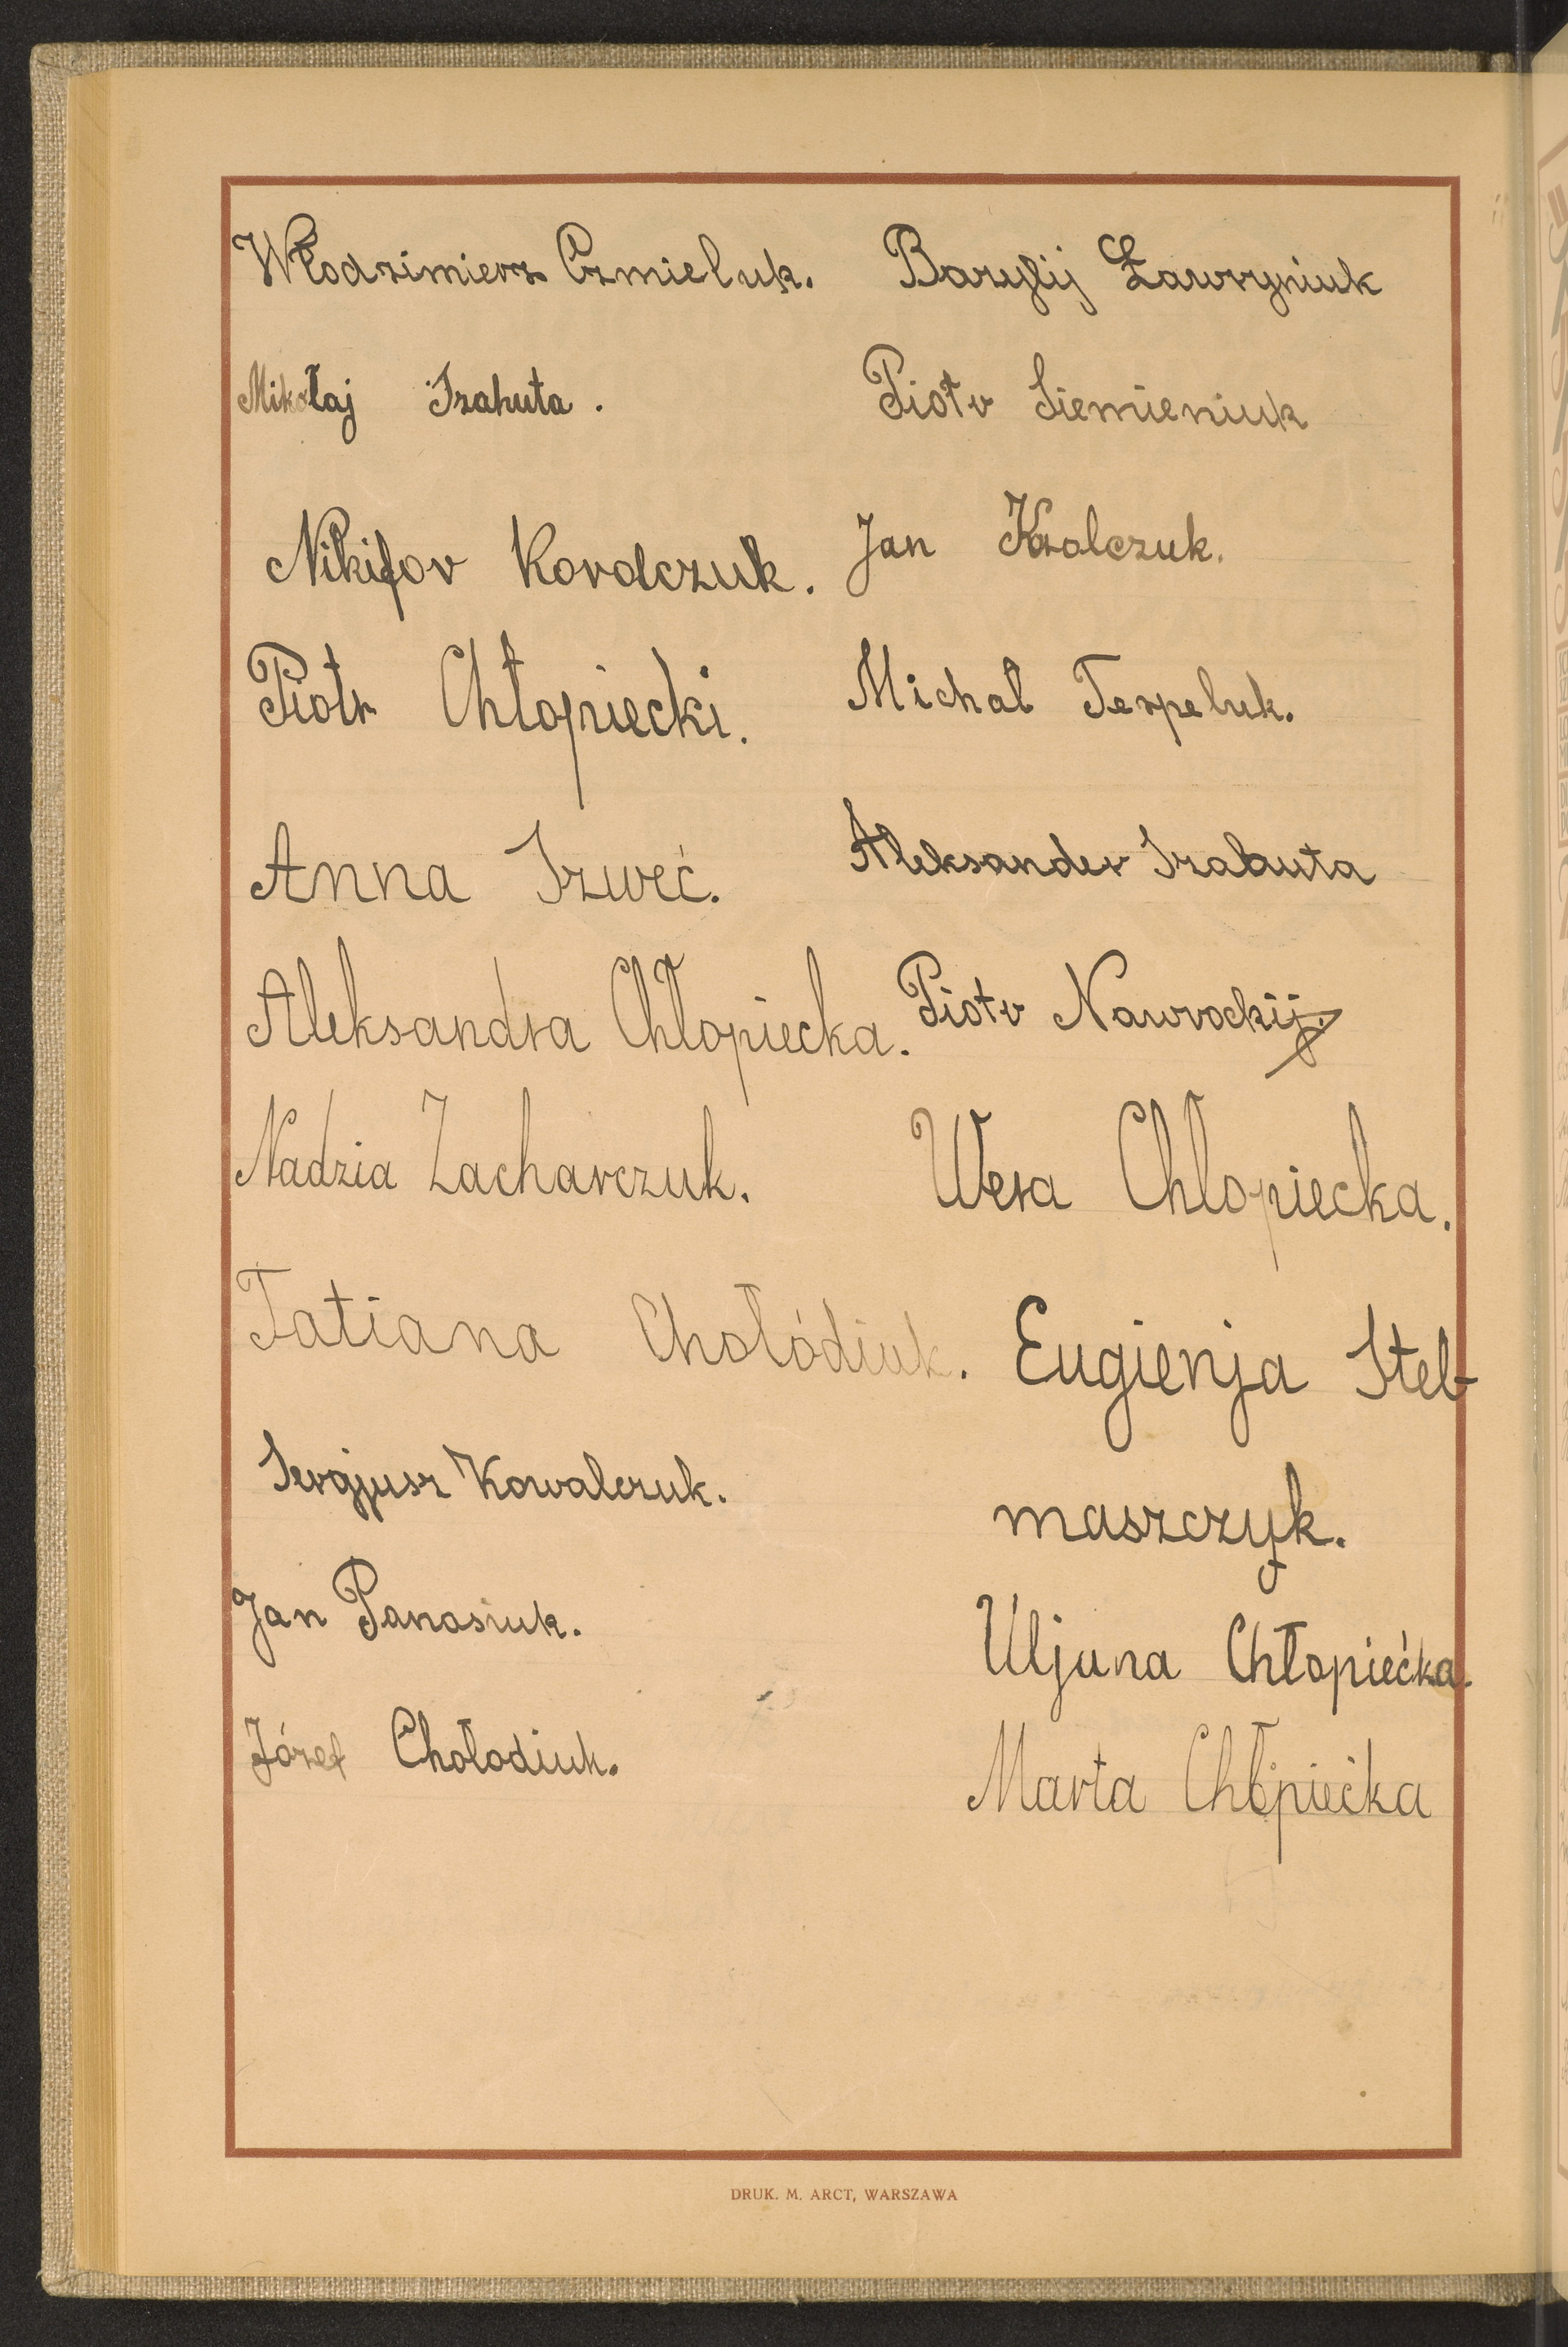 Włodzimierz Czmieluk.
Mikołaj Szahuta.
Nikifor Kovolczuk.
Piotr Chłopiecki.
Anna Szweć.
Aleksandra Chłopiecka.
Nadzia Zacharczuk.
Tatiana Chołódiuk.
Sergjusz Kowalczuk.
Jan Panasiuk.
Józef Chołodiuk.
Bazylij Ławryniuk
Piotr Siemieniuk
Jan
Michal Terpeluk.
Aleksander
Piotr Nawrockij.
Wera Chłopiecka.
Eugienja Steb-
maszczyk.
Uljana Chłopiećka.
Marta Chłopiećka
DRUK. M. ARCT, WARSZAWA